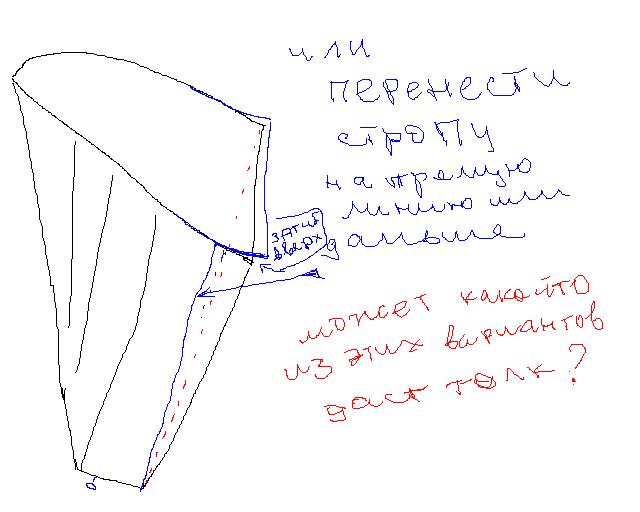 или
перенести
стропу
на третью
линию или
дальше
загиб
вверх
может какойто
из этих вариантов
даст толк?